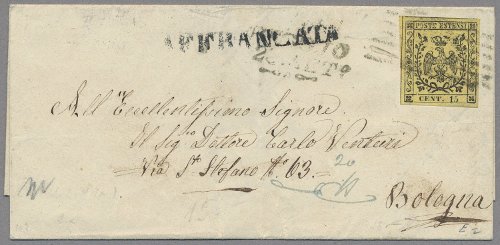 AFFRANCATA
POSTE ESTENSI
CENT. 15
All' Eccellentissimo Signore
Il Sig. Dottore Carlo Venturi
Via St. Stefano No. 63.
20
Bologna